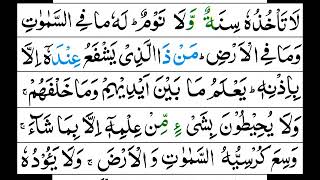 لَا تَأْخُذُهٗ سِنَةٌ وَّلَا نَوْمٌ ؕ لَهٗ مَا فِی السَّمٰوٰتِ
وَمَا فِی الْاَرْضِ ؕ مَنْ ذَا الَّذِیْ یَشْفَعُ عِنْدَهٗۤ اِلَّا
بِاِذْنِهٖ ؕ یَعْلَمُ مَا بَیْنَ اَیْدِیْهِمْ وَمَا خَلْفَهُمْ ۚ
وَلَا یُحِیْطُوْنَ بِشَیْءٍ مِّنْ عِلْمِهٖۤ اِلَّا بِمَا شَآءَ ۚ
وَسِعَ كُرْسِیُّهُ السَّمٰوٰتِ وَالْاَرْضَ ۚ وَلَا یَـُٔوْدُهٗ